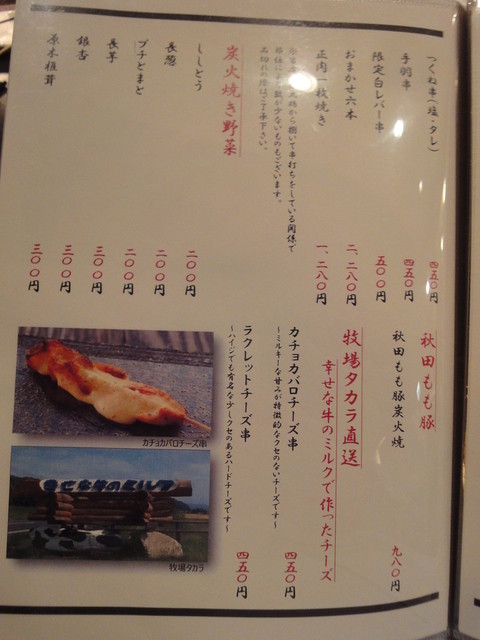 つくね串(塩・タレ)
四五〇円
手羽串
四五〇円
限定白レバー串
五〇〇円
おまかせ六本
二、二八〇円
正肉一枚焼き
一、二八〇円
から捌いて串打ちをしている関係で
数が少ないものもございます。
品切れの際はご了承下さい。
炭火焼き野菜
ししとう
二〇〇円
長葱
二〇〇円
プチとまと
二〇〇円
長芋
三〇〇円
銀杏
三〇〇円
原木椎茸
三〇〇円
秋田もも豚
秋田もも豚炭火焼
九八〇円
牧場タカラ直送
幸せな牛のミルクで作ったチーズ
カチョカバロチーズ串
~ミルキーな甘みが特徴的なクセのないチーズです~
四五〇円
ラクレットチーズ串
~ハイジでも有名な少しクセのあるハードチーズです~
四五〇円
カチョカバロチーズ串
幸せ牛のミルク
牧場タカラ